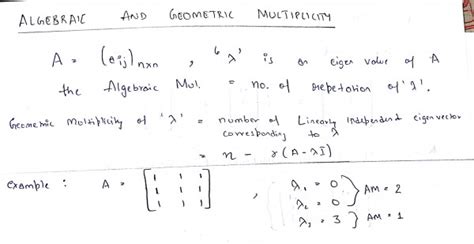 ALGEBRAIC AND GEOMETRIC MULTIPLICITY
A = (aij)n×n , 'λ' is an eigen value of A
the Algebraic Mul. = no. of repetation of 'λ'.
Geometric Multiplicity of 'λ' = number of Linearly Independent eigenvector
corresponding to λ
= n - r(A - λI)
Example : A = [1 1 1 , λ1 = 0 } AM = 2
1 1 1 λ2 = 0
1 1 1] λ3 = 3 } AM = 1